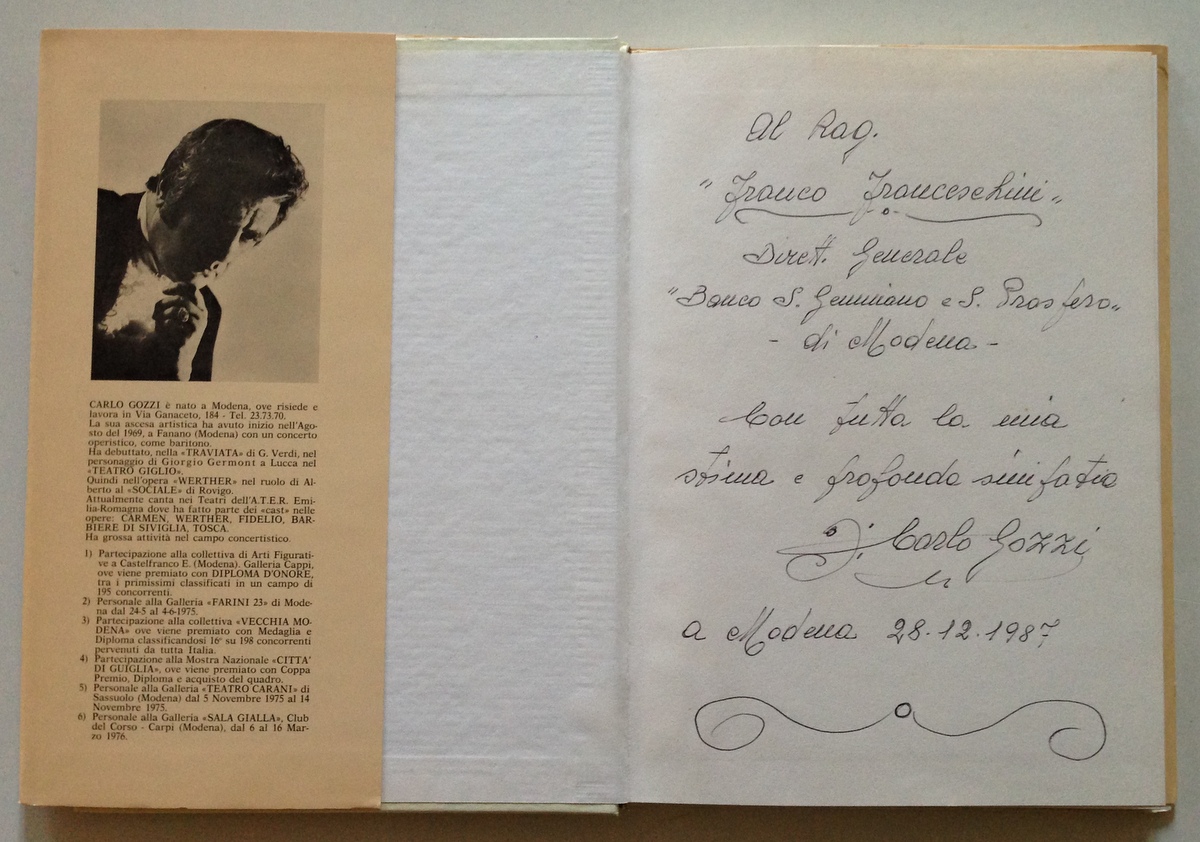 CARLO GOZZI è nato a Modena, ove risiede e
lavora in Via Ganaceto, 184 - Tel. 23.73.70.
La sua ascesa artistica ha avuto inizio nell'Ago-
sto del 1969, a Fanano (Modena) con un concerto
operistico, come baritono.
Ha debuttato, nella «TRAVIATA» di G. Verdi, nel
personaggio di Giorgio Germont a Lucca nel
«TEATRO GIGLIO».
Quindi nell'opera «WERTHER» nel ruolo di Al-
berto al «SOCIALE» di Rovigo.
Attualmente canta nei Teatri dell'A.T.E.R. Emi-
lia-Romagna dove ha fatto parte dei «cast» nelle
opere: CARMEN, WERTHER, FIDELIO, BAR-
BIERE DI SIVIGLIA, TOSCA.
Ha grossa attività nel campo concertistico.
1) Partecipazione alla collettiva di Arti Figurati-
ve a Castelfranco E. (Modena). Galleria Cappi,
ove viene premiato con DIPLOMA D'ONORE,
tra i primissimi classificati in un campo di
195 concorrenti.
2) Personale alla Galleria «FARINI 23» di Mode-
na dal 24-5 al 4-6-1975.
3) Partecipazione alla collettiva «VECCHIA MO-
DENA» ove viene premiato con Medaglia e
Diploma classificandosi 16° su 198 concorrenti
pervenuti da tutta Italia.
4) Partecipazione alla Mostra Nazionale «CITTA'
DI GUIGLIA», ove viene premiato con Coppa
Premio, Diploma e acquisto del quadro.
5) Personale alla Galleria «TEATRO CARANI» di
Sassuolo (Modena) dal 5 Novembre 1975 al 14
Novembre 1975.
6) Personale alla Galleria «SALA GIALLA», Club
del Corso - Carpi (Modena), dal 6 al 16 Mar-
zo 1976.
Al Rag.
"Franco Franceschini"
Dirett. Generale
"Banco S. Geminiano e S. Prospero"
- di Modena -
Con tutta la mia
stima e profonda simpatia
Carlo Gozzi
a Modena 28.12.1987